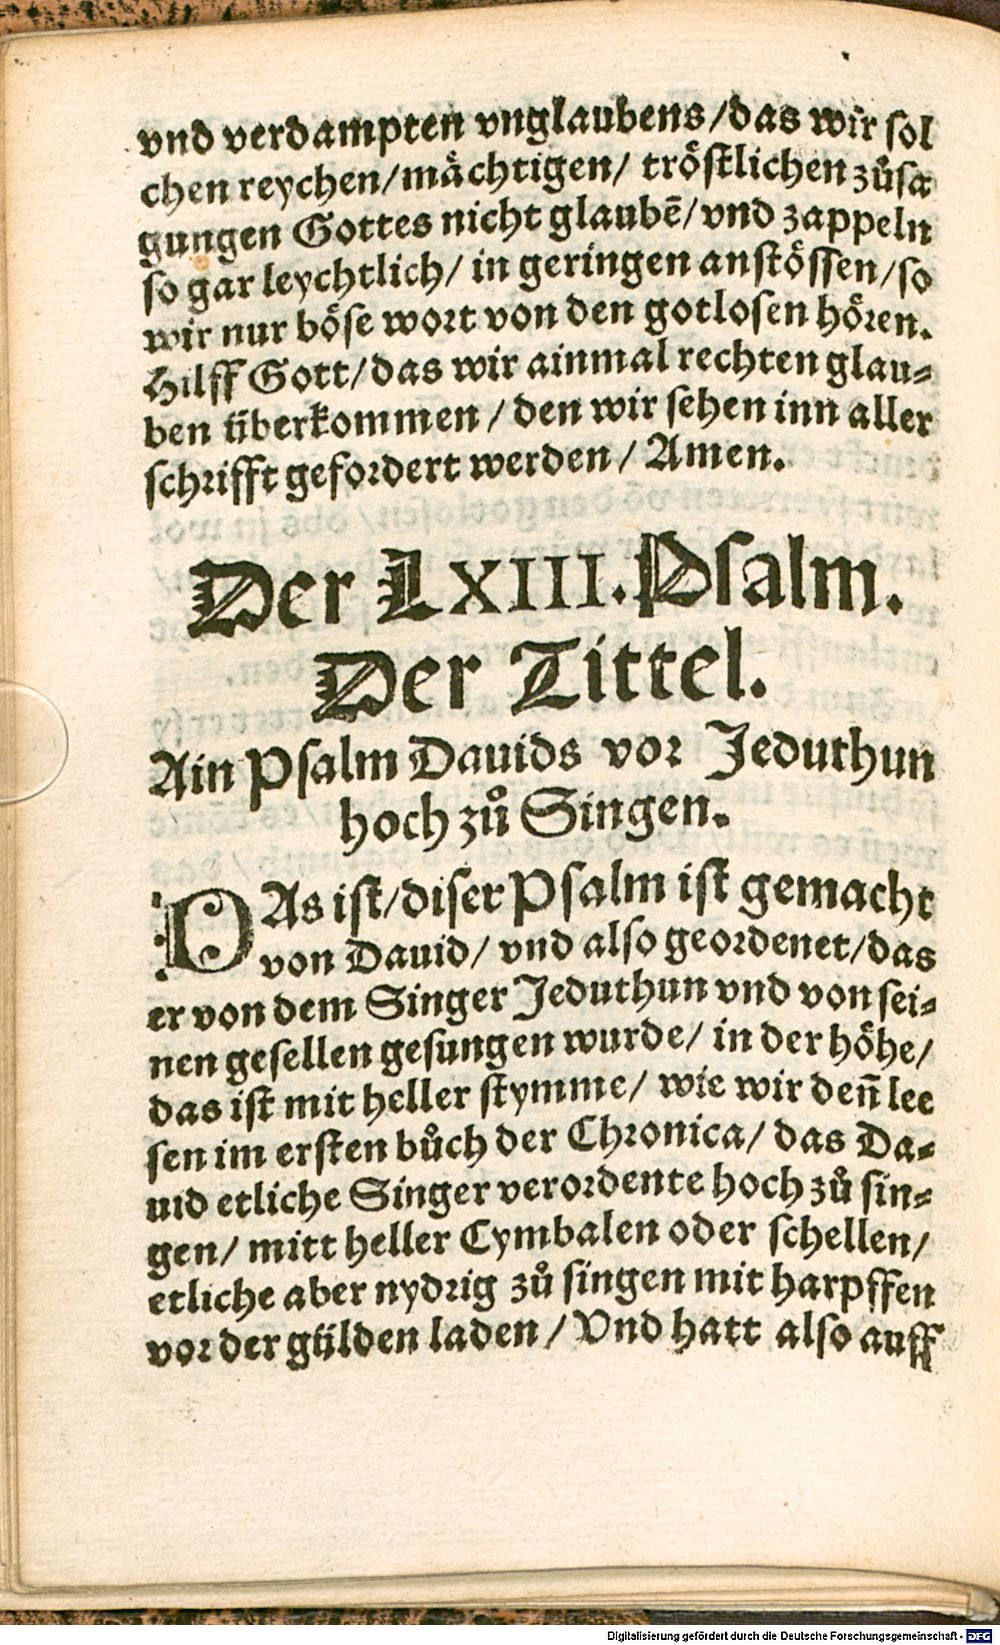 vnd verdampten vnglaubens/das wir sol
chen reychen/mächtigen/ tröstlichen zůsa
gungen Gottes nicht glaubē/vnd zappeln
so gar leychtlich/ in geringen anstössen/so
wir nur böse wort von den gotlosen hören.
Hilff Gott/das wir ainmal rechten glau-
ben überkommen/ den wir sehen inn aller
schrifft gefordert werden/ Amen.
Der LXIII. Psalm.
Der Tittel.
Ain Psalm Dauids vor Jeduthun
hoch zů Singen.
DAs ist/diser Psalm ist gemacht
von Dauid/ vnd also geordenet/das
er von dem Singer Jeduthun vnd von sei-
nen gesellen gesungen wurde/ in der höhe/
das ist mit heller stymme/ wie wir deñ lee
sen im ersten bůch der Chronica/ das Da-
uid etliche Singer verordente hoch zů sin-
gen/ mitt heller Cymbalen oder schellen/
etliche aber nydrig zů singen mit harpffen
vor der gülden laden/Vnd hatt also auff
Digitalisierung gefördert durch die Deutsche Forschungsgemeinschaft - DFG